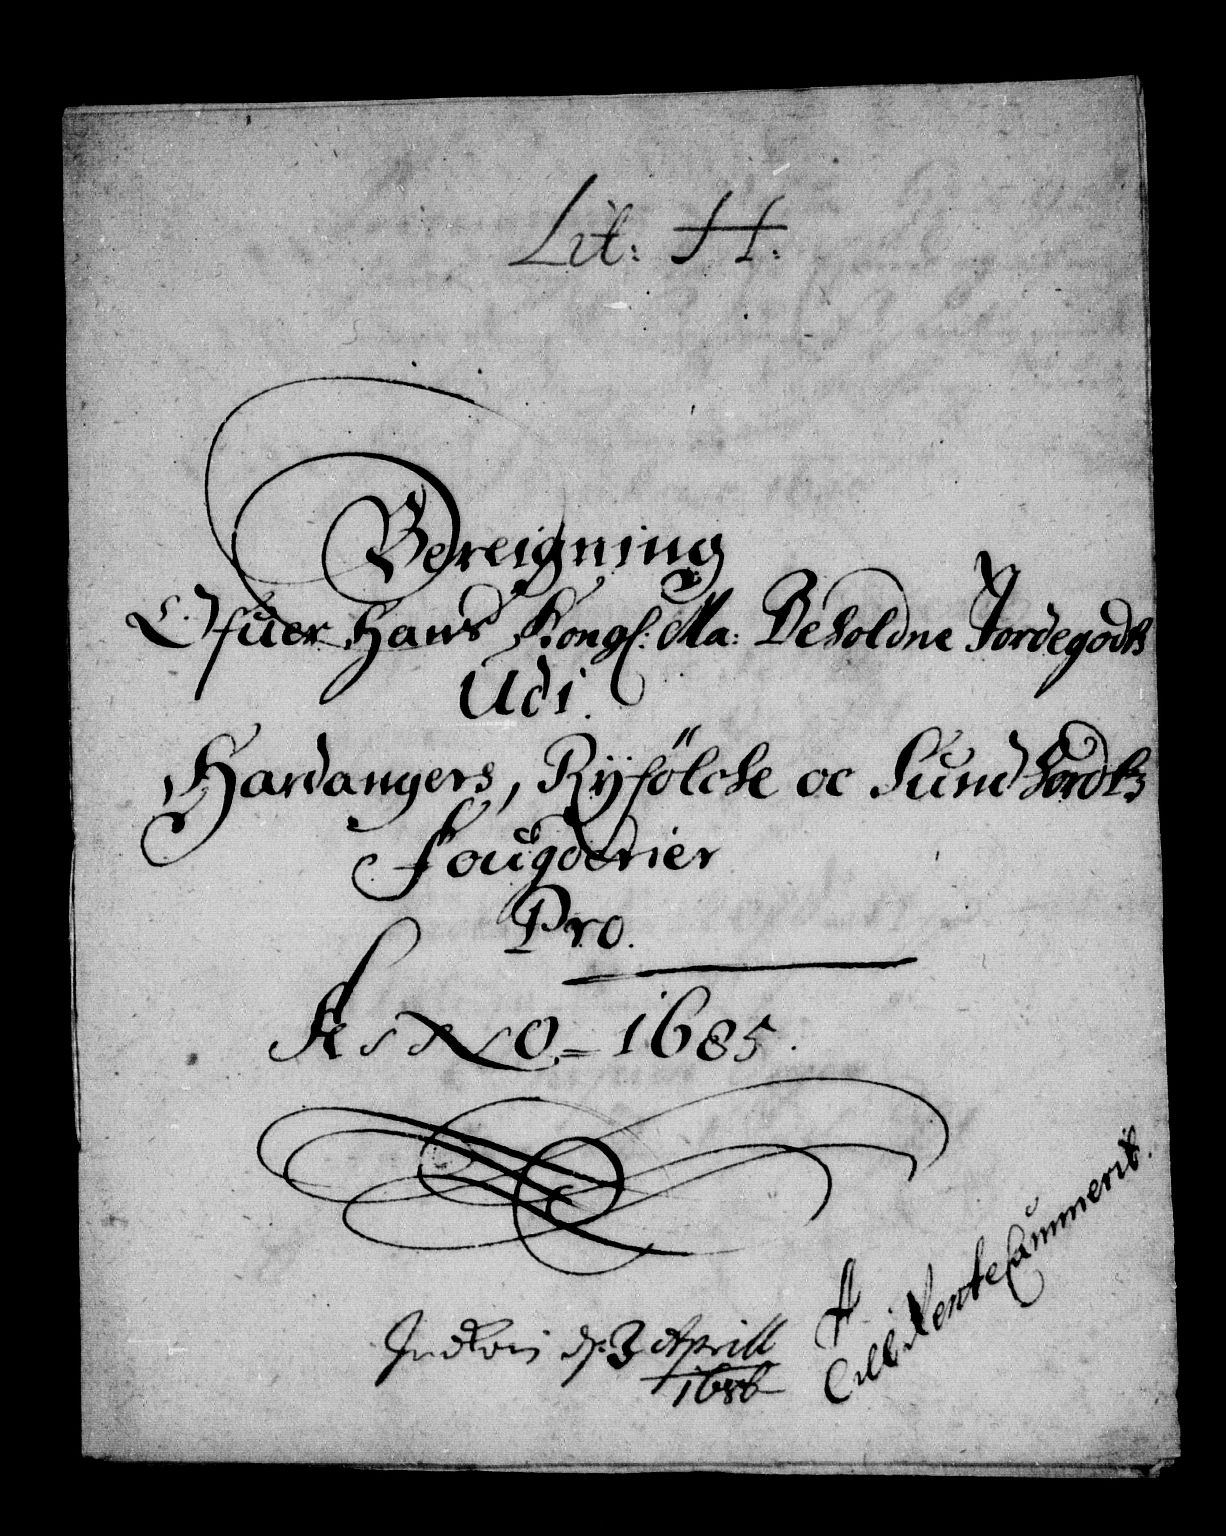 Lit: H.
Bereigning
Ofuer Hans Kongl: Ma: Beholdne Jordegodts
Udi.
Hardangers, Ryfölche oc Sundhordts
Fougderier
Pro.
Anno 1685.
d: 3 Aprill
1686
Rentekammerit.